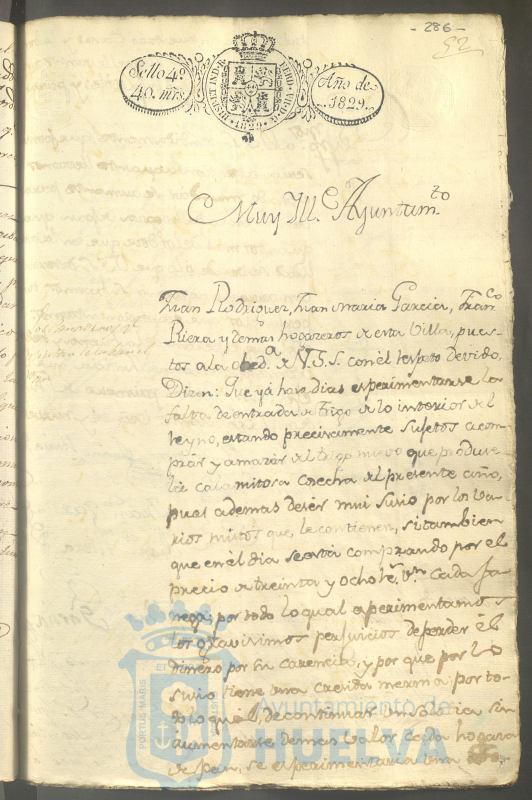 - 286 -
52
Sello 4º
40. mrs.
HISPET IND R
FERD VII D G
1829
Año de
1829.
Muy Ill.e Ayuntam.to
Juan Rodriguez, Juan Maria Garcia, Fran.co
Riera y demas hogazeros de esta Villa, pues
tos a la obed.a de V.S.S. con el respeto devido,
Dizen: Que yá hace dias experimentarse la
falta de entrada de trigo de lo interior del
reyno, estando precisamente sujetos a com
prar y amazar el trigo nuevo que produce
la calamitosa cosecha del presente año,
pues ademas de ser mui sucio por los va
rios mistos que le contienen, si tambien
que en el dia se está comprando por el
precio de treinta y ocho r.s v.n cada fa
nega, por todo lo qual experimentamos
los gravisimos perjuicios de perder el
dinero por su carencia, y por que por lo
sucio tiene una crecida merma: por to
do lo qual, de continuar un solo dia sin
aumentarse de mas valor cada hogaza
de pan, se experimentaria una
ET
PORTUS MARIS
CUSTODIA
Ayuntamiento de
HUELVA